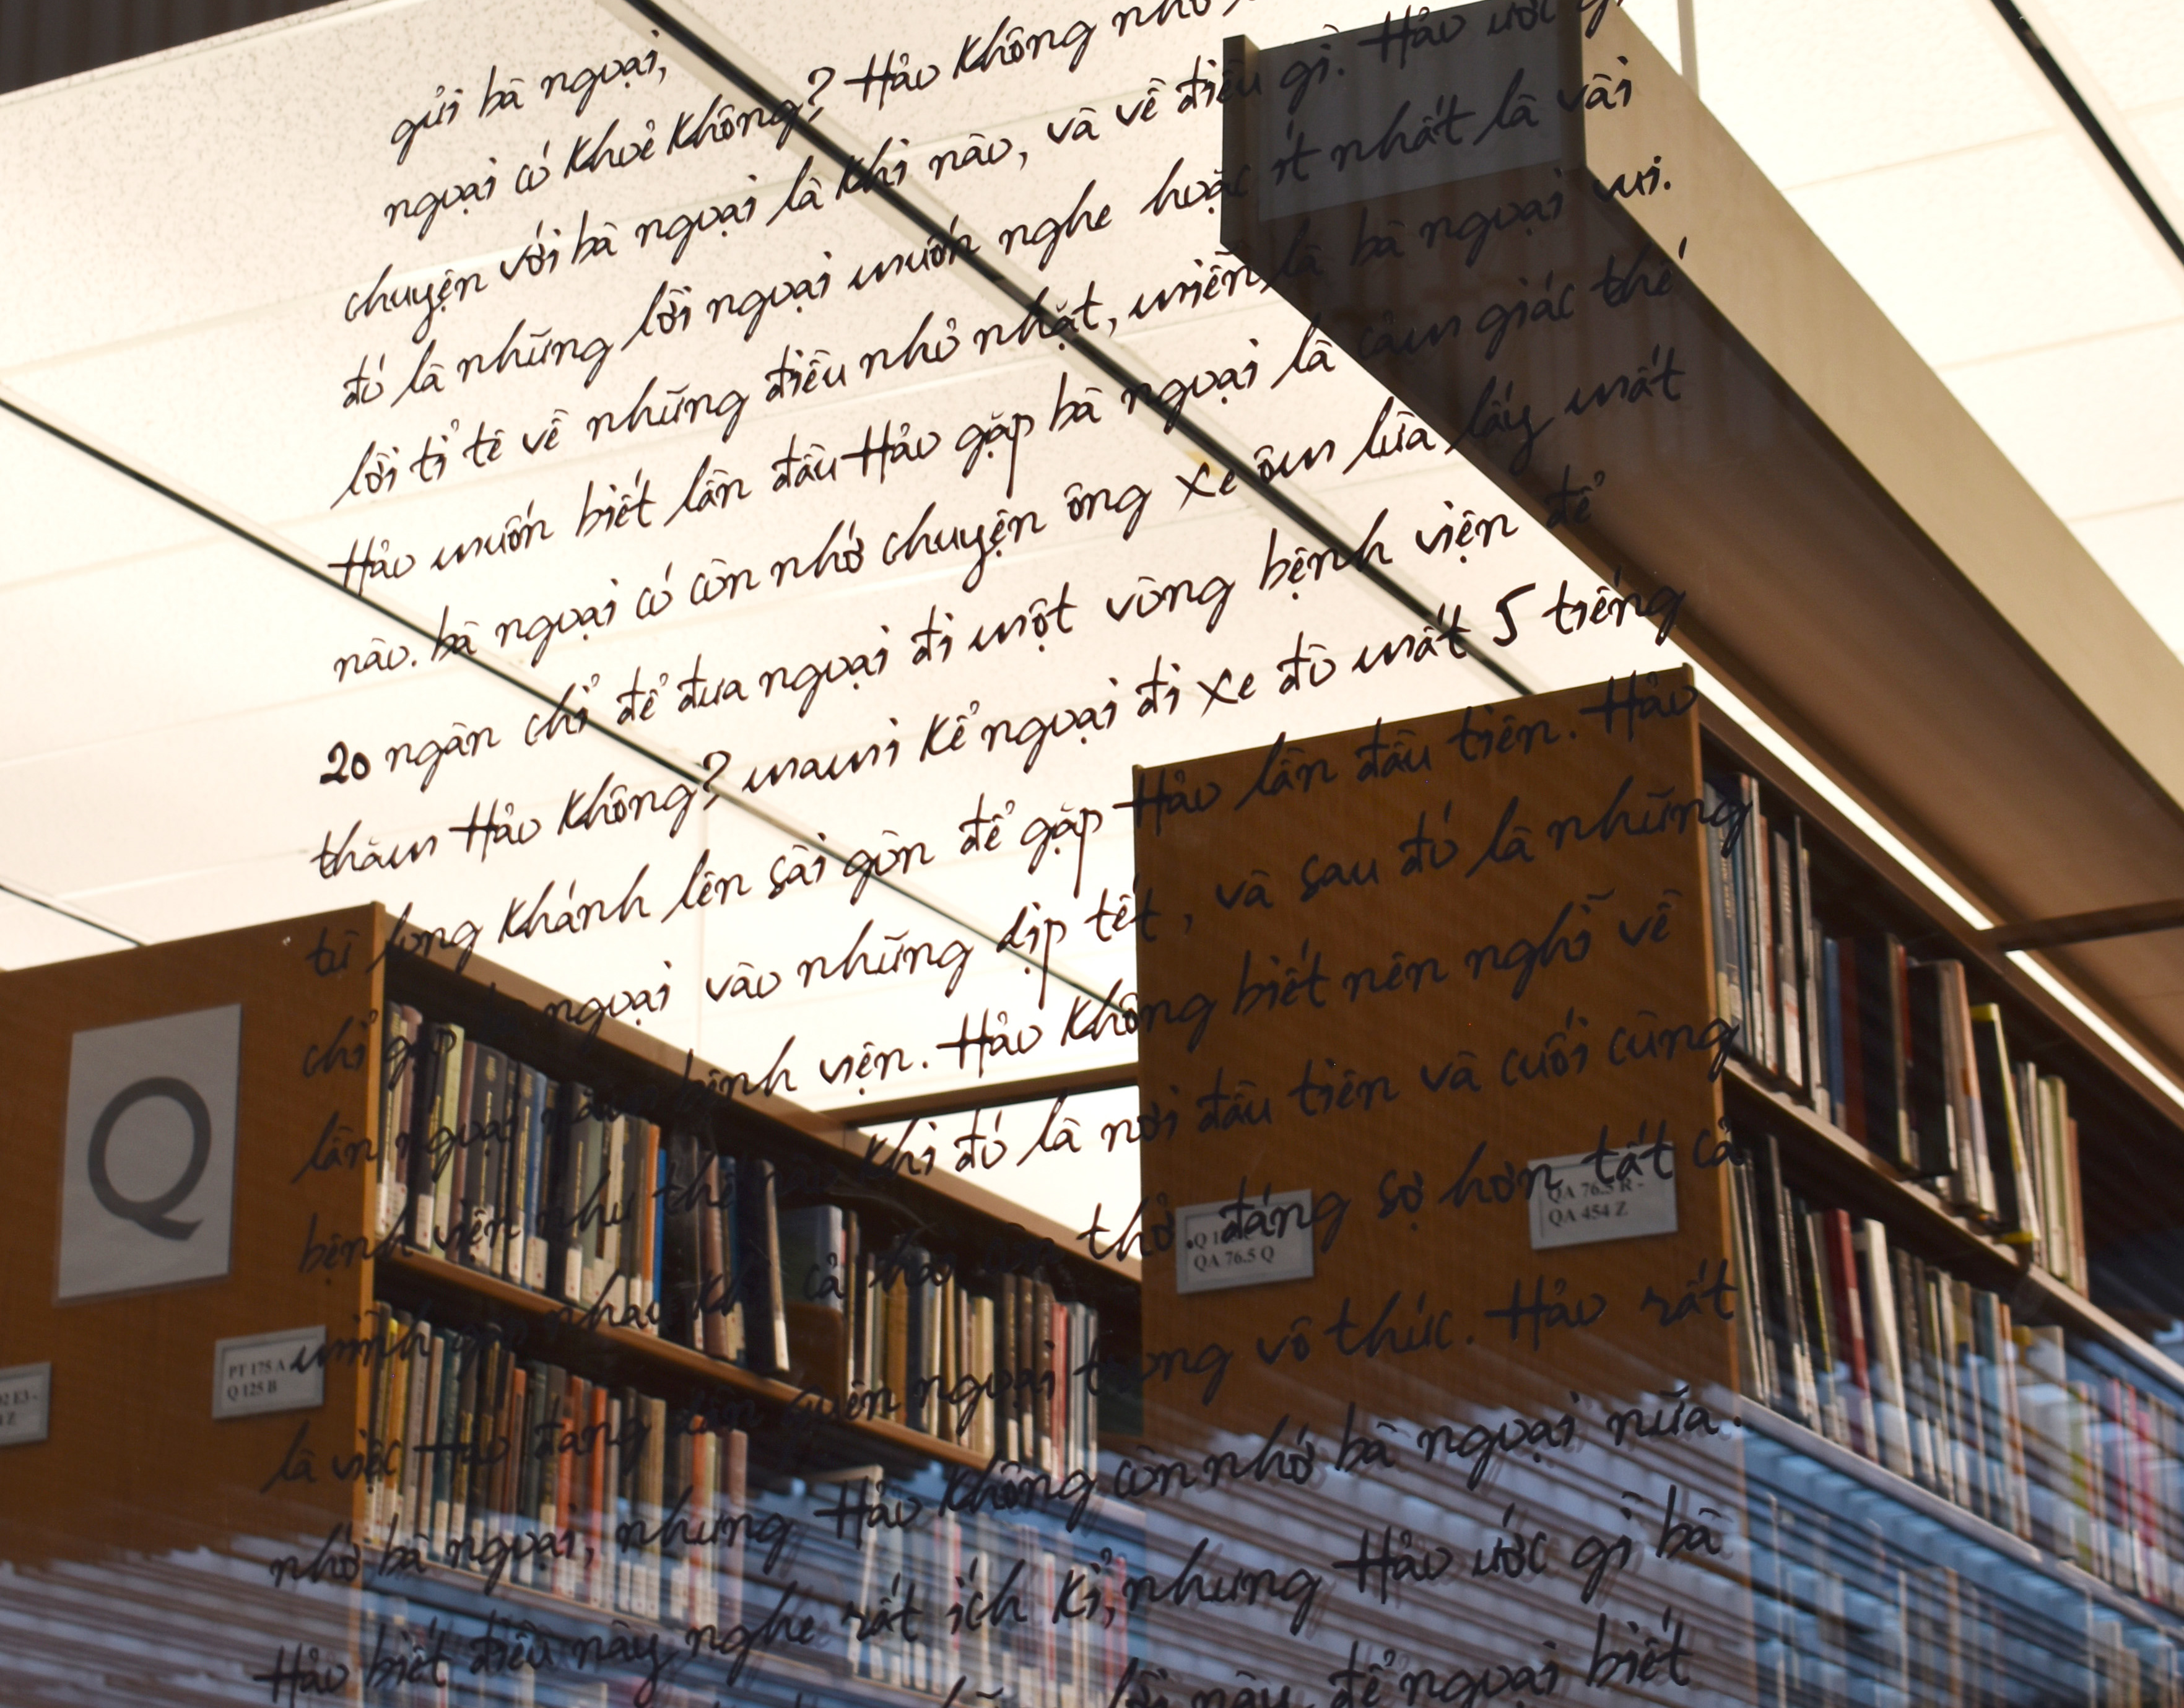 gửi bà ngoại,
ngoại có khoẻ không? Hảo không nhớ
chuyện với bà ngoại là khi nào, và về điều gì. Hảo ước gì
đó là những lời ngoại muốn nghe hoặc ít nhất là vài
lời tỉ tê về những điều nhỏ nhặt, miễn là bà ngoại vui.
Hảo muốn biết lần đầu Hảo gặp bà ngoại là cảm giác thế
nào. bà ngoại có còn nhớ chuyện ông xe ôm lừa lấy mất
20 ngàn chỉ để đưa ngoại đi một vòng bệnh viện để
thăm Hảo không? mami kể ngoại đi xe đò mất 5 tiếng
từ long khánh lên sài gòn để gặp Hảo lần đầu tiên. Hảo
chỉ gặp ngoại vào những dịp tết, và sau đó là những
lần ngoại nằm bệnh viện. Hảo không biết nên nghĩ về
bệnh viện như thế nào khi đó là nơi đầu tiên và cuối cùng
mình gặp nhau khi cả thở. đáng sợ hơn tất cả
là việc Hảo đang dần quên ngoại trong vô thức. Hảo rất
nhớ bà ngoại, nhưng Hảo không còn nhớ bà ngoại nữa.
Hảo biết điều này nghe rất ích kỉ, nhưng Hảo ước gì bà
lời này, để ngoại biết
Q
PT 175 A
Q 125 B
QA 76.5 Q
QA 76.5 R -
QA 454 Z